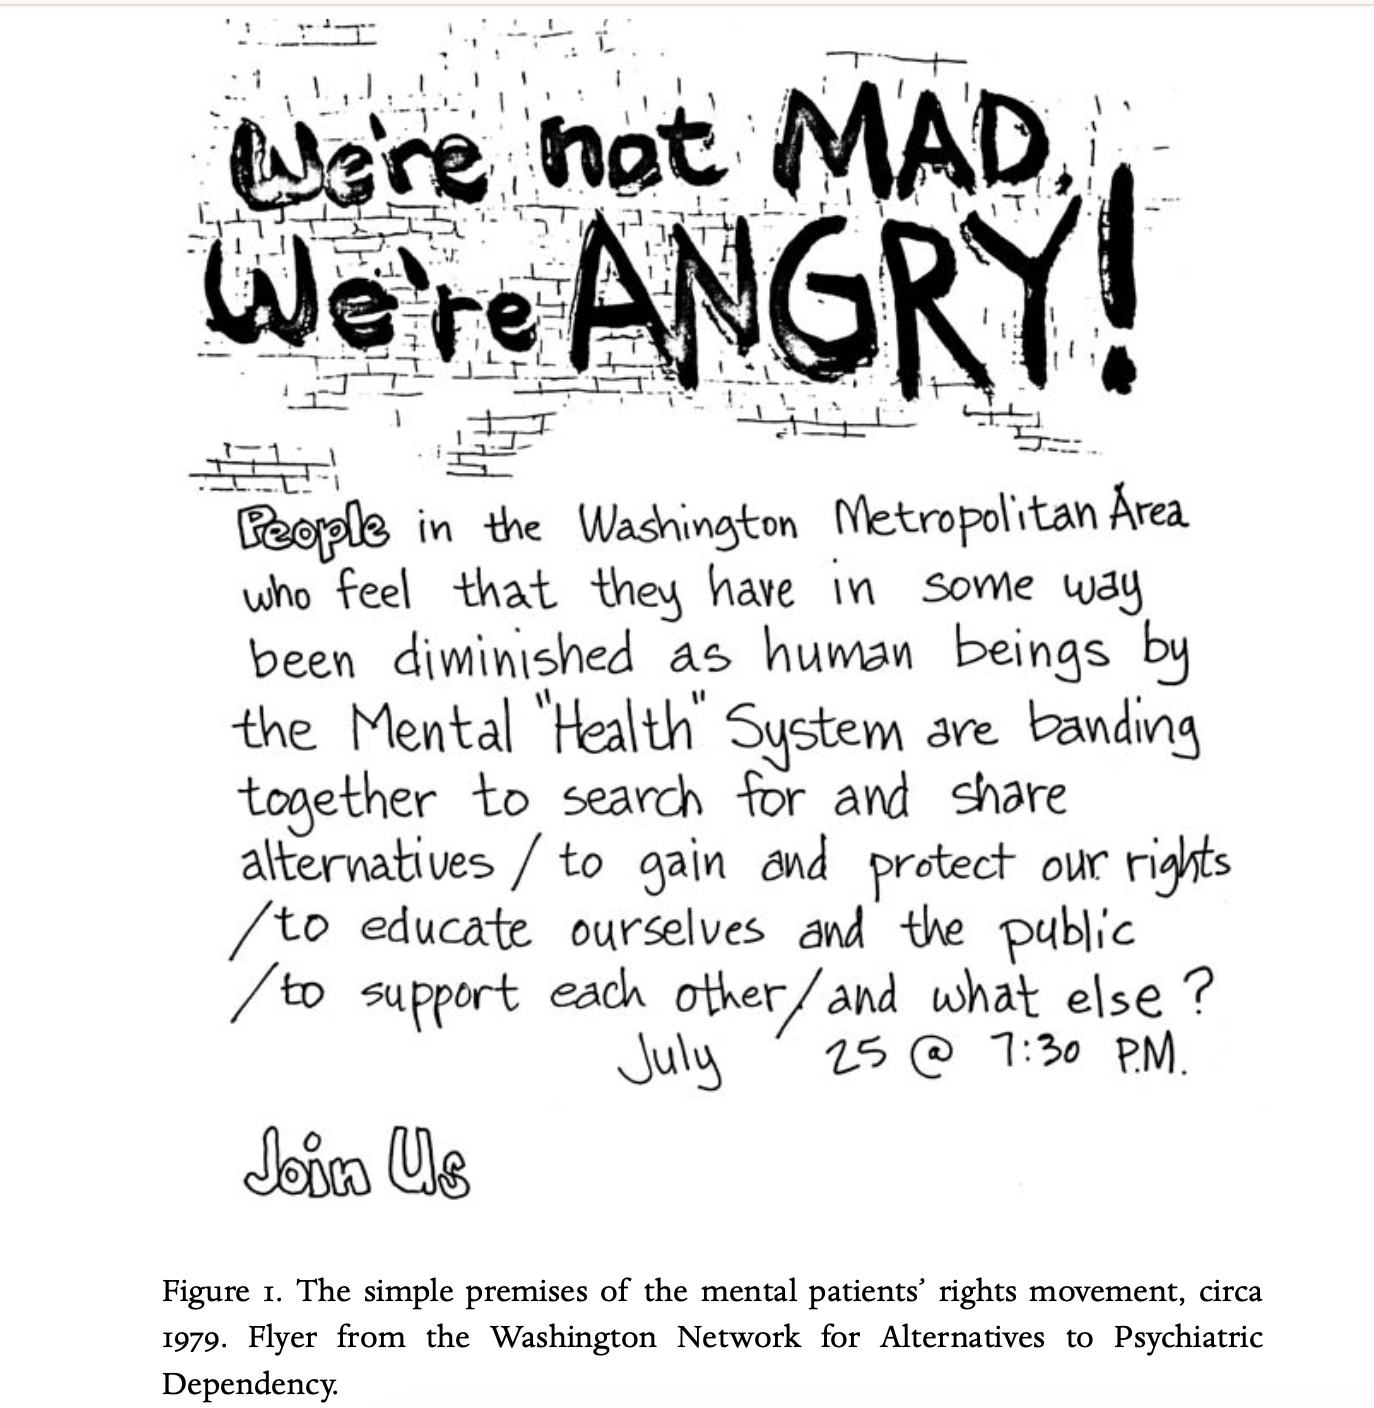 We're not MAD,
We're ANGRY!
People in the Washington Metropolitan Area
who feel that they have in some way
been diminished as human beings by
the Mental "Health" System are banding
together to search for and share
alternatives / to gain and protect our rights
/to educate ourselves and the public
/to support each other/and what else?
July 25 @ 7:30 P.M.
Join Us
Figure 1. The simple premises of the mental patients’ rights movement, circa
1979. Flyer from the Washington Network for Alternatives to Psychiatric
Dependency.